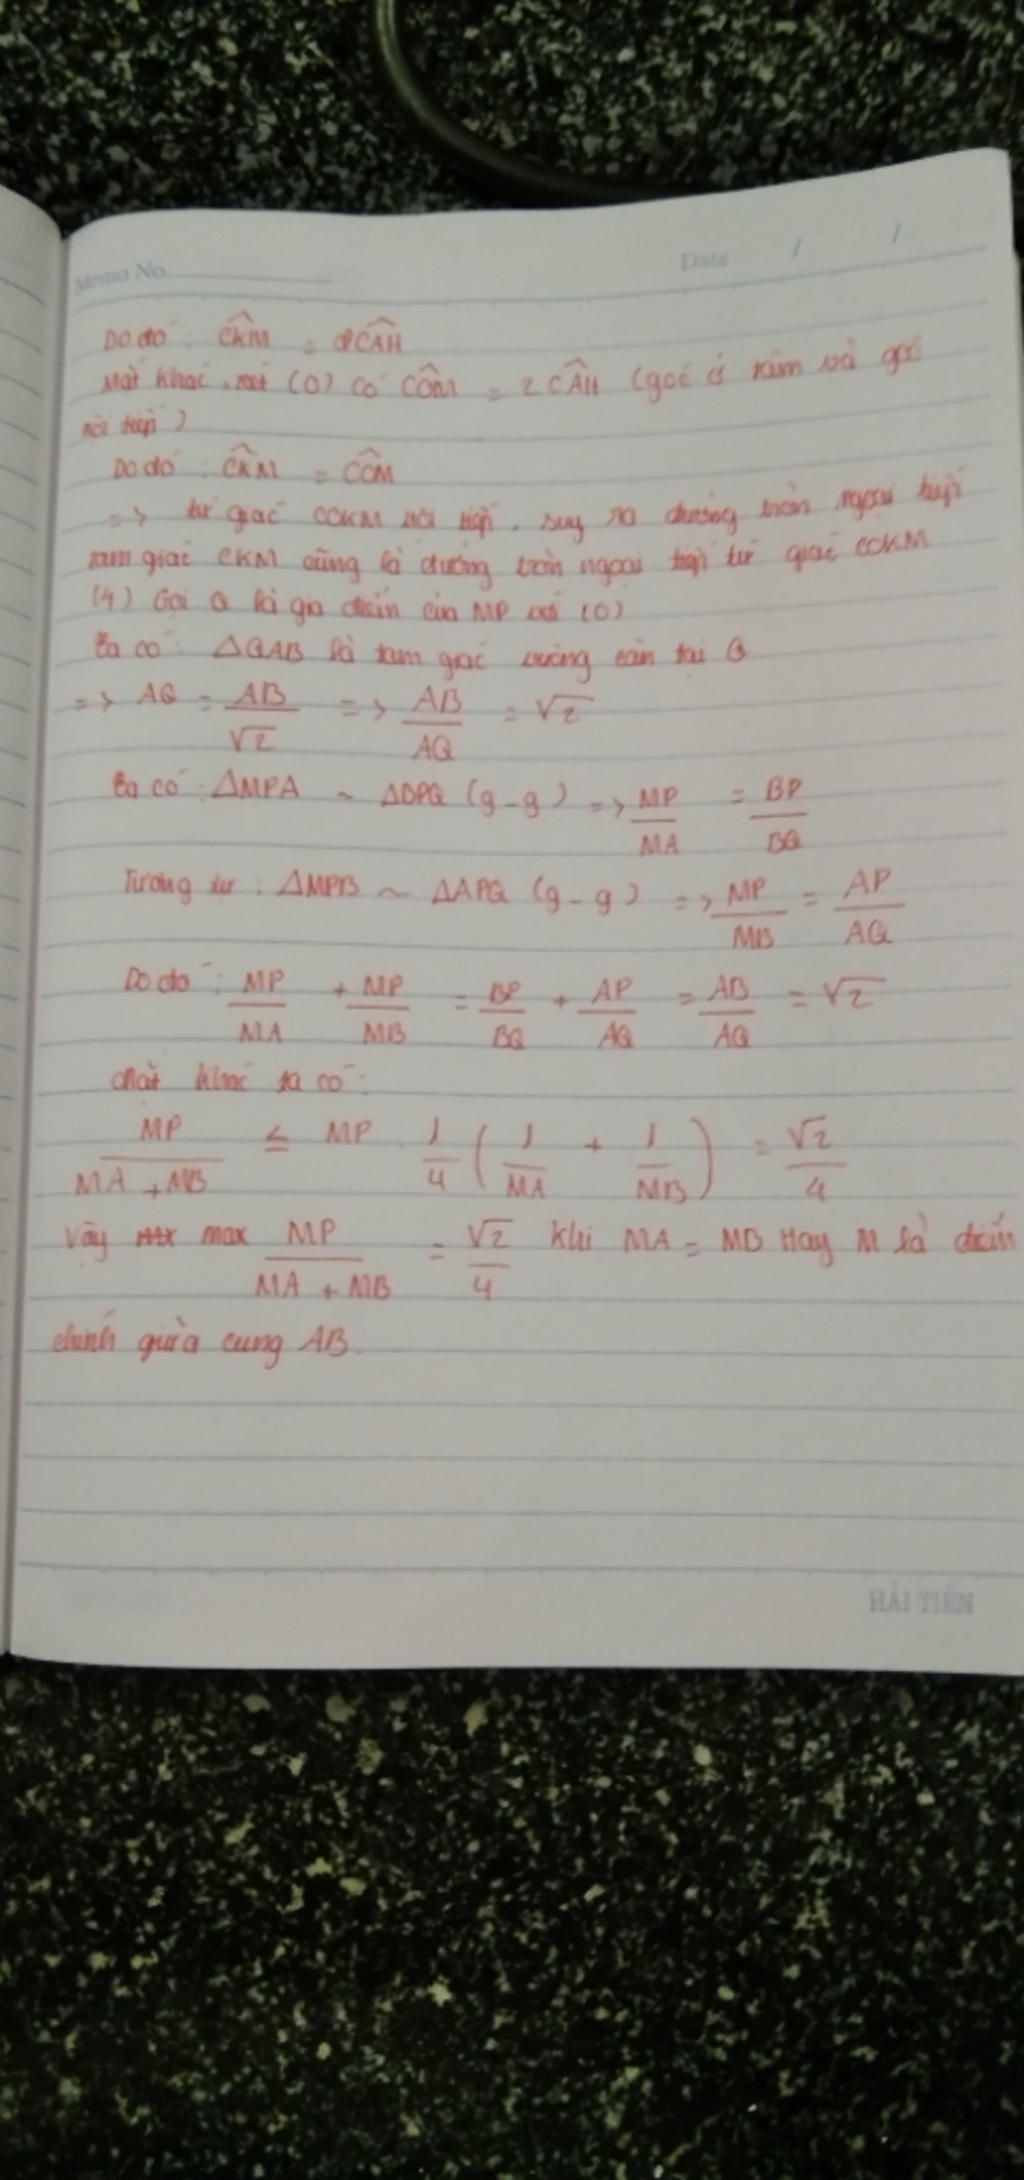 Memo No. Date / /
Do đó : \widehat{CKM} = 2\widehat{CAH}
Mặt khác, xét (O) có \widehat{COM} = 2\widehat{CAH} (góc ở tâm và góc
nội tiếp)
Do đó : \widehat{CKM} = \widehat{COM}
=> tứ giác COKM nội tiếp, suy ra đường tròn ngoại tiếp
tam giác CKM cũng là đường tròn ngoại tiếp tứ giác COKM
(4) Gọi Q là gia điểm của MP với (O)
Ta có : ΔQAB là tam giác vuông cân tại Q
=> AQ = \frac{AB}{\sqrt{2}} => \frac{AB}{AQ} = \sqrt{2}
Ta có : ΔMPA ~ ΔBPQ (g-g) => \frac{MP}{MA} = \frac{BP}{BQ}
Tương tự : ΔMPB ~ ΔAPQ (g-g) => \frac{MP}{MB} = \frac{AP}{AQ}
Do đó : \frac{MP}{MA} + \frac{MP}{MB} = \frac{BP}{BQ} + \frac{AP}{AQ} = \frac{AB}{AQ} = \sqrt{2}
Mặt khác ta có :
\frac{MP}{MA + MB} ≤ MP . \frac{1}{4} ( \frac{1}{MA} + \frac{1}{MB} ) = \frac{\sqrt{2}}{4}
Vậy max \frac{MP}{MA + MB} = \frac{\sqrt{2}}{4} khi MA = MB Hay M là điểm
chính giữa cung AB.
HẢI TIẾN